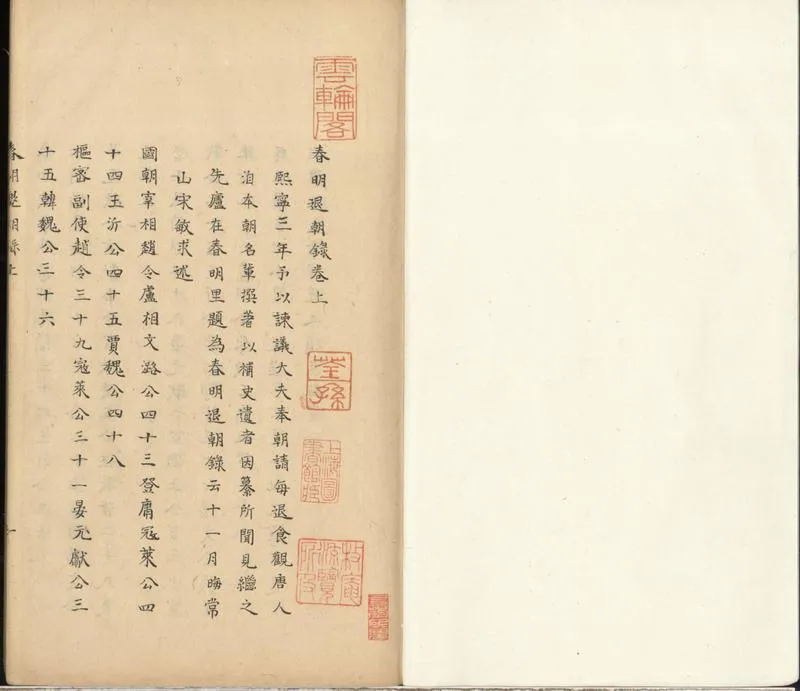 春明退朝錄卷上
熙寧三年予以諫議大夫奉朝請每退食觀唐人
洎本朝名輩撰著以補史遺者因纂所聞見繼之
先廬在春明里題為春明退朝錄云十一月晦常
山宋敏求述
國朝宰相趙令盧相文潞公四十三登庸寇萊公四
十四王沂公四十五賈魏公四十八
樞密副使趙令三十九寇萊公三十一晏元獻公三
十五韓魏公三十六
春明退朝錄上
一
雲輪閣
荃孫
上海圖書館藏